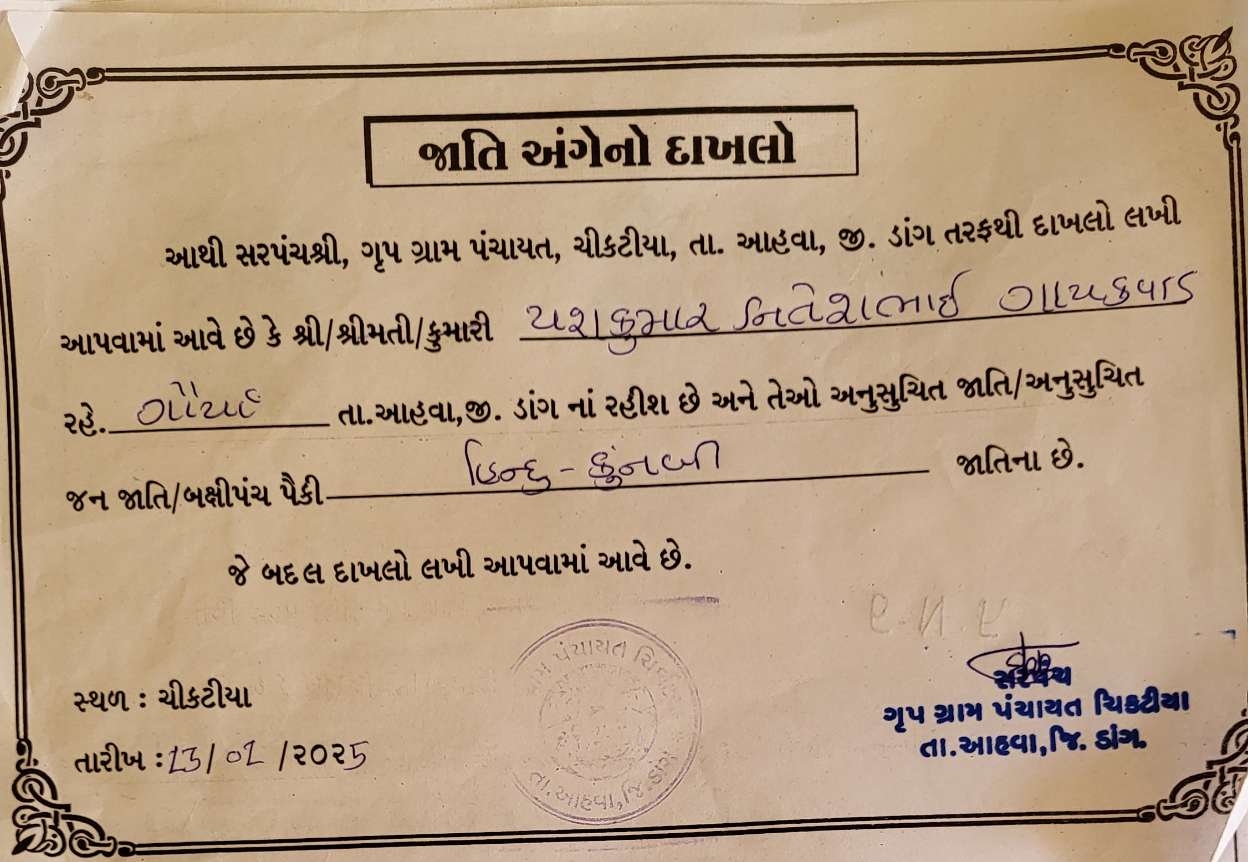 જાતિ અંગેનો દાખલો
આથી સરપંચશ્રી, ગૃપ ગ્રામ પંચાયત, ચીકટીયા, તા. આહવા, જી. ડાંગ તરફથી દાખલો લખી
આપવામાં આવે છે કે શ્રી/શ્રીમતી/કુમારી યશકુમાર નિતેશભાઈ ગાયકવાડ
રહે. તા.આહવા,જી. ડાંગ નાં રહીશ છે અને તેઓ અનુસુચિત જાતિ/અનુસુચિત
જન જાતિ/બક્ષીપંચ પૈકી હિન્દુ - કુંનબી જાતિના છે.
જે બદલ દાખલો લખી આપવામાં આવે છે.
સ્થળ : ચીકટીયા
તારીખ : 13/01/૨૦૨5
ગ્રામ પંચાયત ચિકટીયા
તા.આહવા,જિ.ડાંગ
સરપંચ
ગૃપ ગ્રામ પંચાયત ચિકટીયા
તા.આહવા,જિ. ડાંગ.